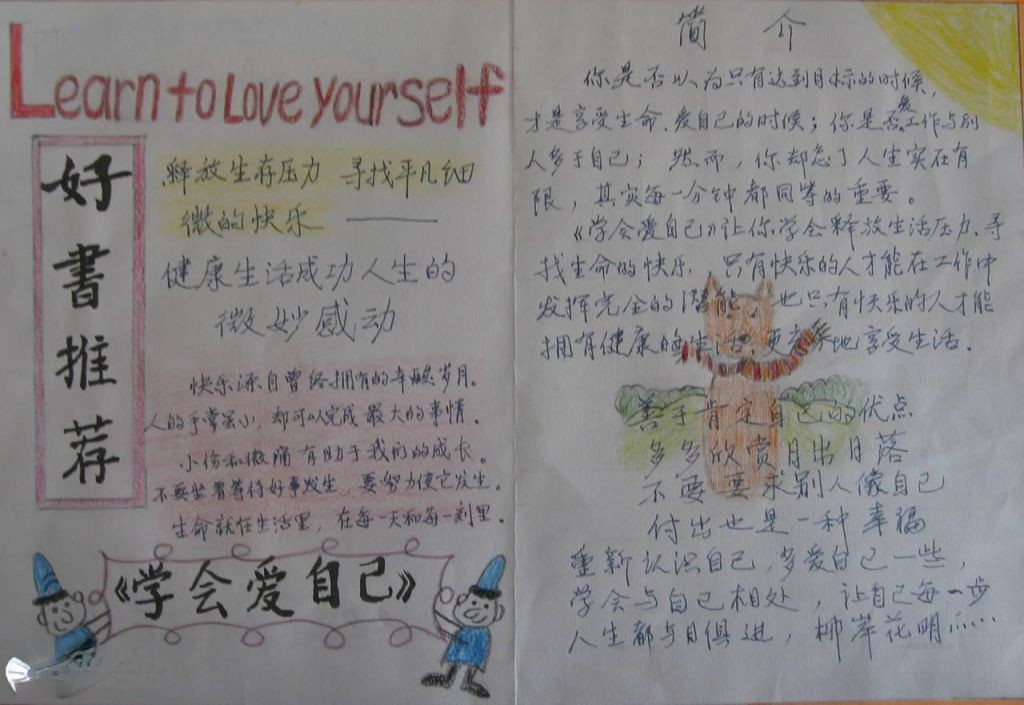 Learn to Love yourself
好書推荐
释放生存压力 寻找平凡细
微的快乐 ——
健康生活成功人生的
微妙感动
快乐源自曾经拥有的辛酸岁月。
人的手掌虽小，却可以完成最大的事情。
小伤和微痛有助于我们的成长。
不要坐着等待好事发生，要努力使它发生。
生命就在生活里，在每一天和每一刻里。
《学会爱自己》
简 介
你是否以为只有达到目标的时候，
才是享受生命、爱自己的时候；你是否爱工作与别
人多于自己；然而，你却忘了人生实在有
限，其实每一分钟都同等的重要。
《学会爱自己》让你学会释放生活压力、寻
找生命的快乐。只有快乐的人才能在工作中
发挥完全的潜能，也只有快乐的人才能
拥有健康的生活，更充 地享受生活。
善于肯定自己的优点
多多欣赏月出日落
不要要求别人像自己
付出也是一种幸福
重新认识自己，多爱自己一些，
学会与自己相处，让自己每一步
人生都与日俱进，柳岸花明……